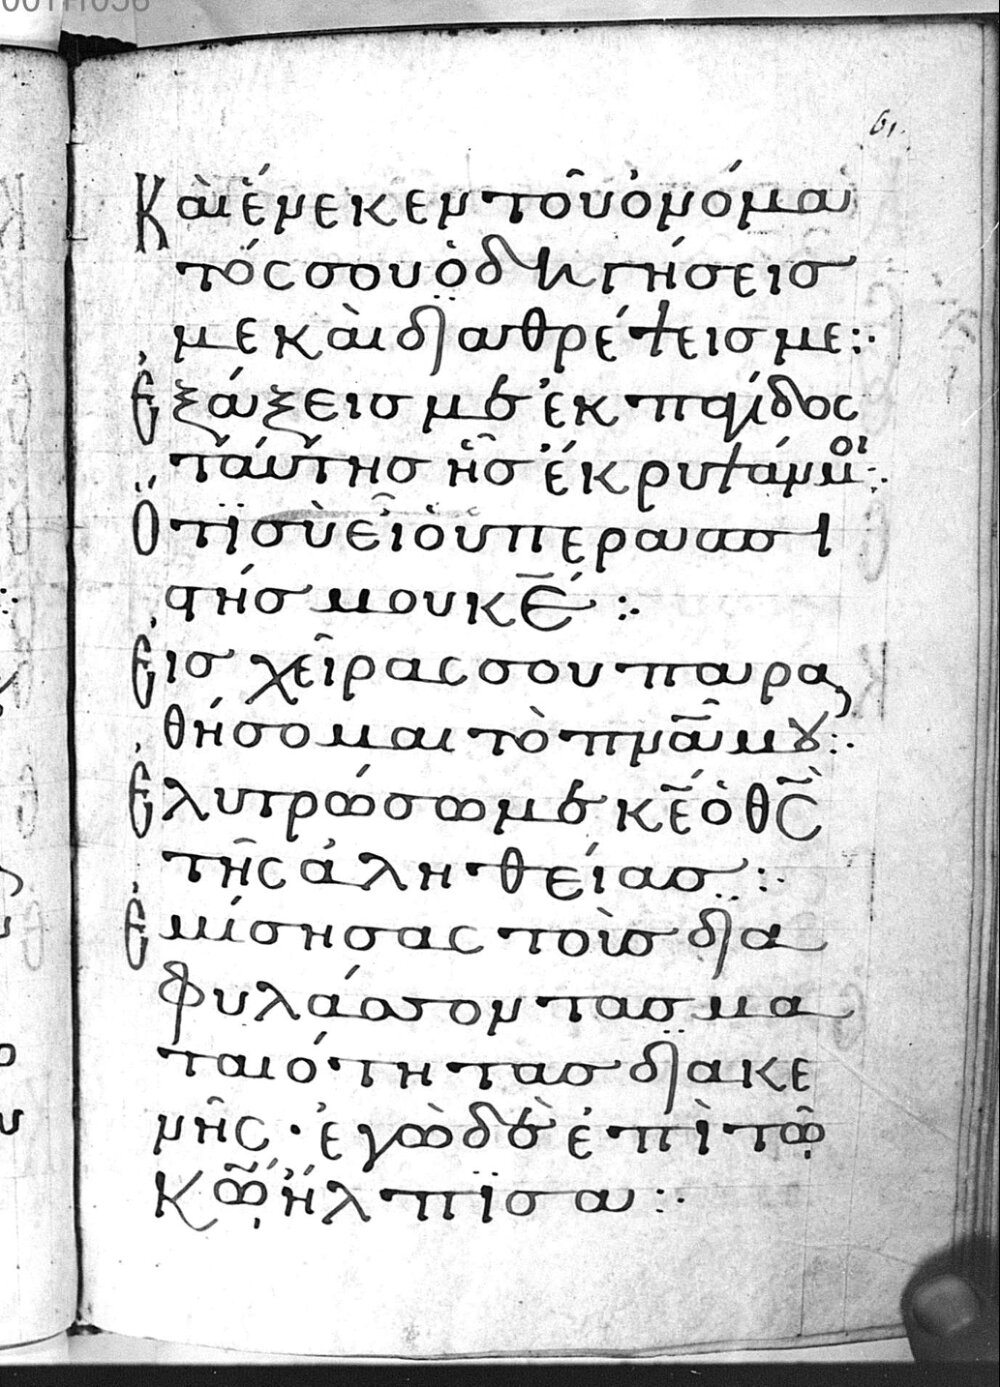 001Π1056
61.
Κὰι ἕνεκεν τοῦ ὀνόμα
τός σου ὁδηγήσεισ
με κὰι δϊαθρέψεισ με:·
Ἐξάξεισ με ἐκ παγίδοσ
ταύτησ ἧσ ἔκρυψάν μοι:·
Ὅτϊ σὺ εἶ ὁ ὑπερασπι
στήσ μου κ̅ε̅:·
Εἰσ χεῖρασ σου παρα
θήσομαι τὸ π̅ν̅α̅ μου:·
Ἐλυτρώσω με κ̅ε̅ ὁ θ̅ς̅
τῆς ἀληθείασ:·
Ἐμίσησας τοὺσ δϊα
φυλάσσοντασ μα
ταιότητασ δϊακε
νῆς· ἐγὼ δὲ ἐπὶ τῷ
κ̅ῳ̅ ἤλπϊσα:·